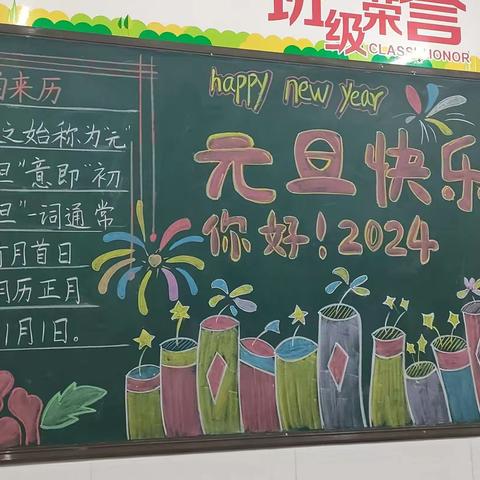 班级荣誉
CLASS HONOR
的来历
之始称为"元"
旦"意即"初
旦"一词通常
首日
月历正月
1月1日。
happy new year
元旦快乐
你好！2024